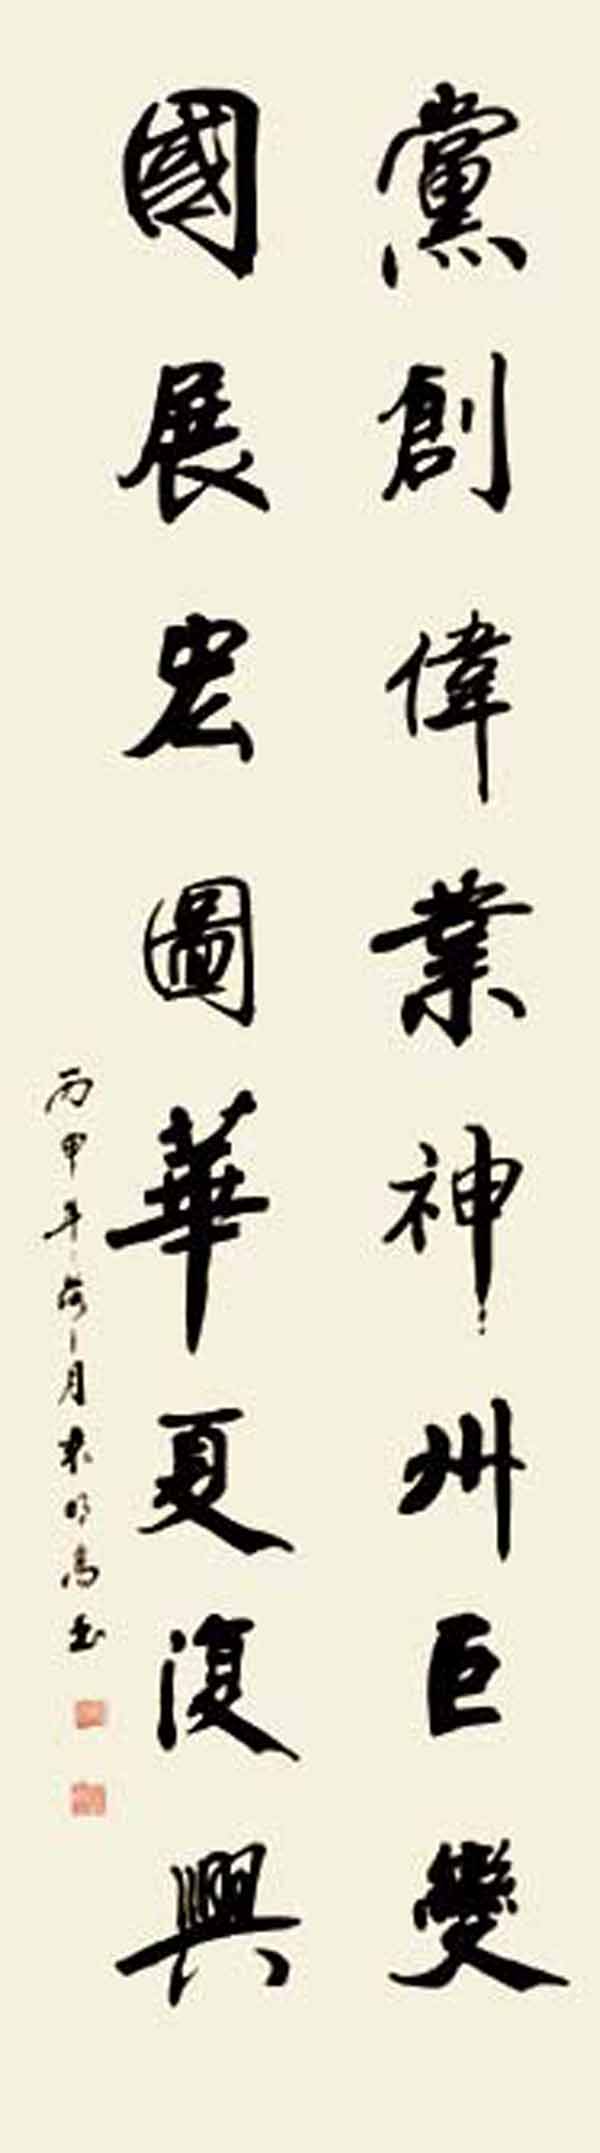 黨創偉業神州巨變
國展宏圖華夏復興
丙申年荷月